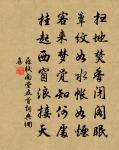 扫地焚香闭阁眠
簟纹如水帐如烟
客来梦觉知何处
挂起西窗浪接天
苏轼南堂五首词典网